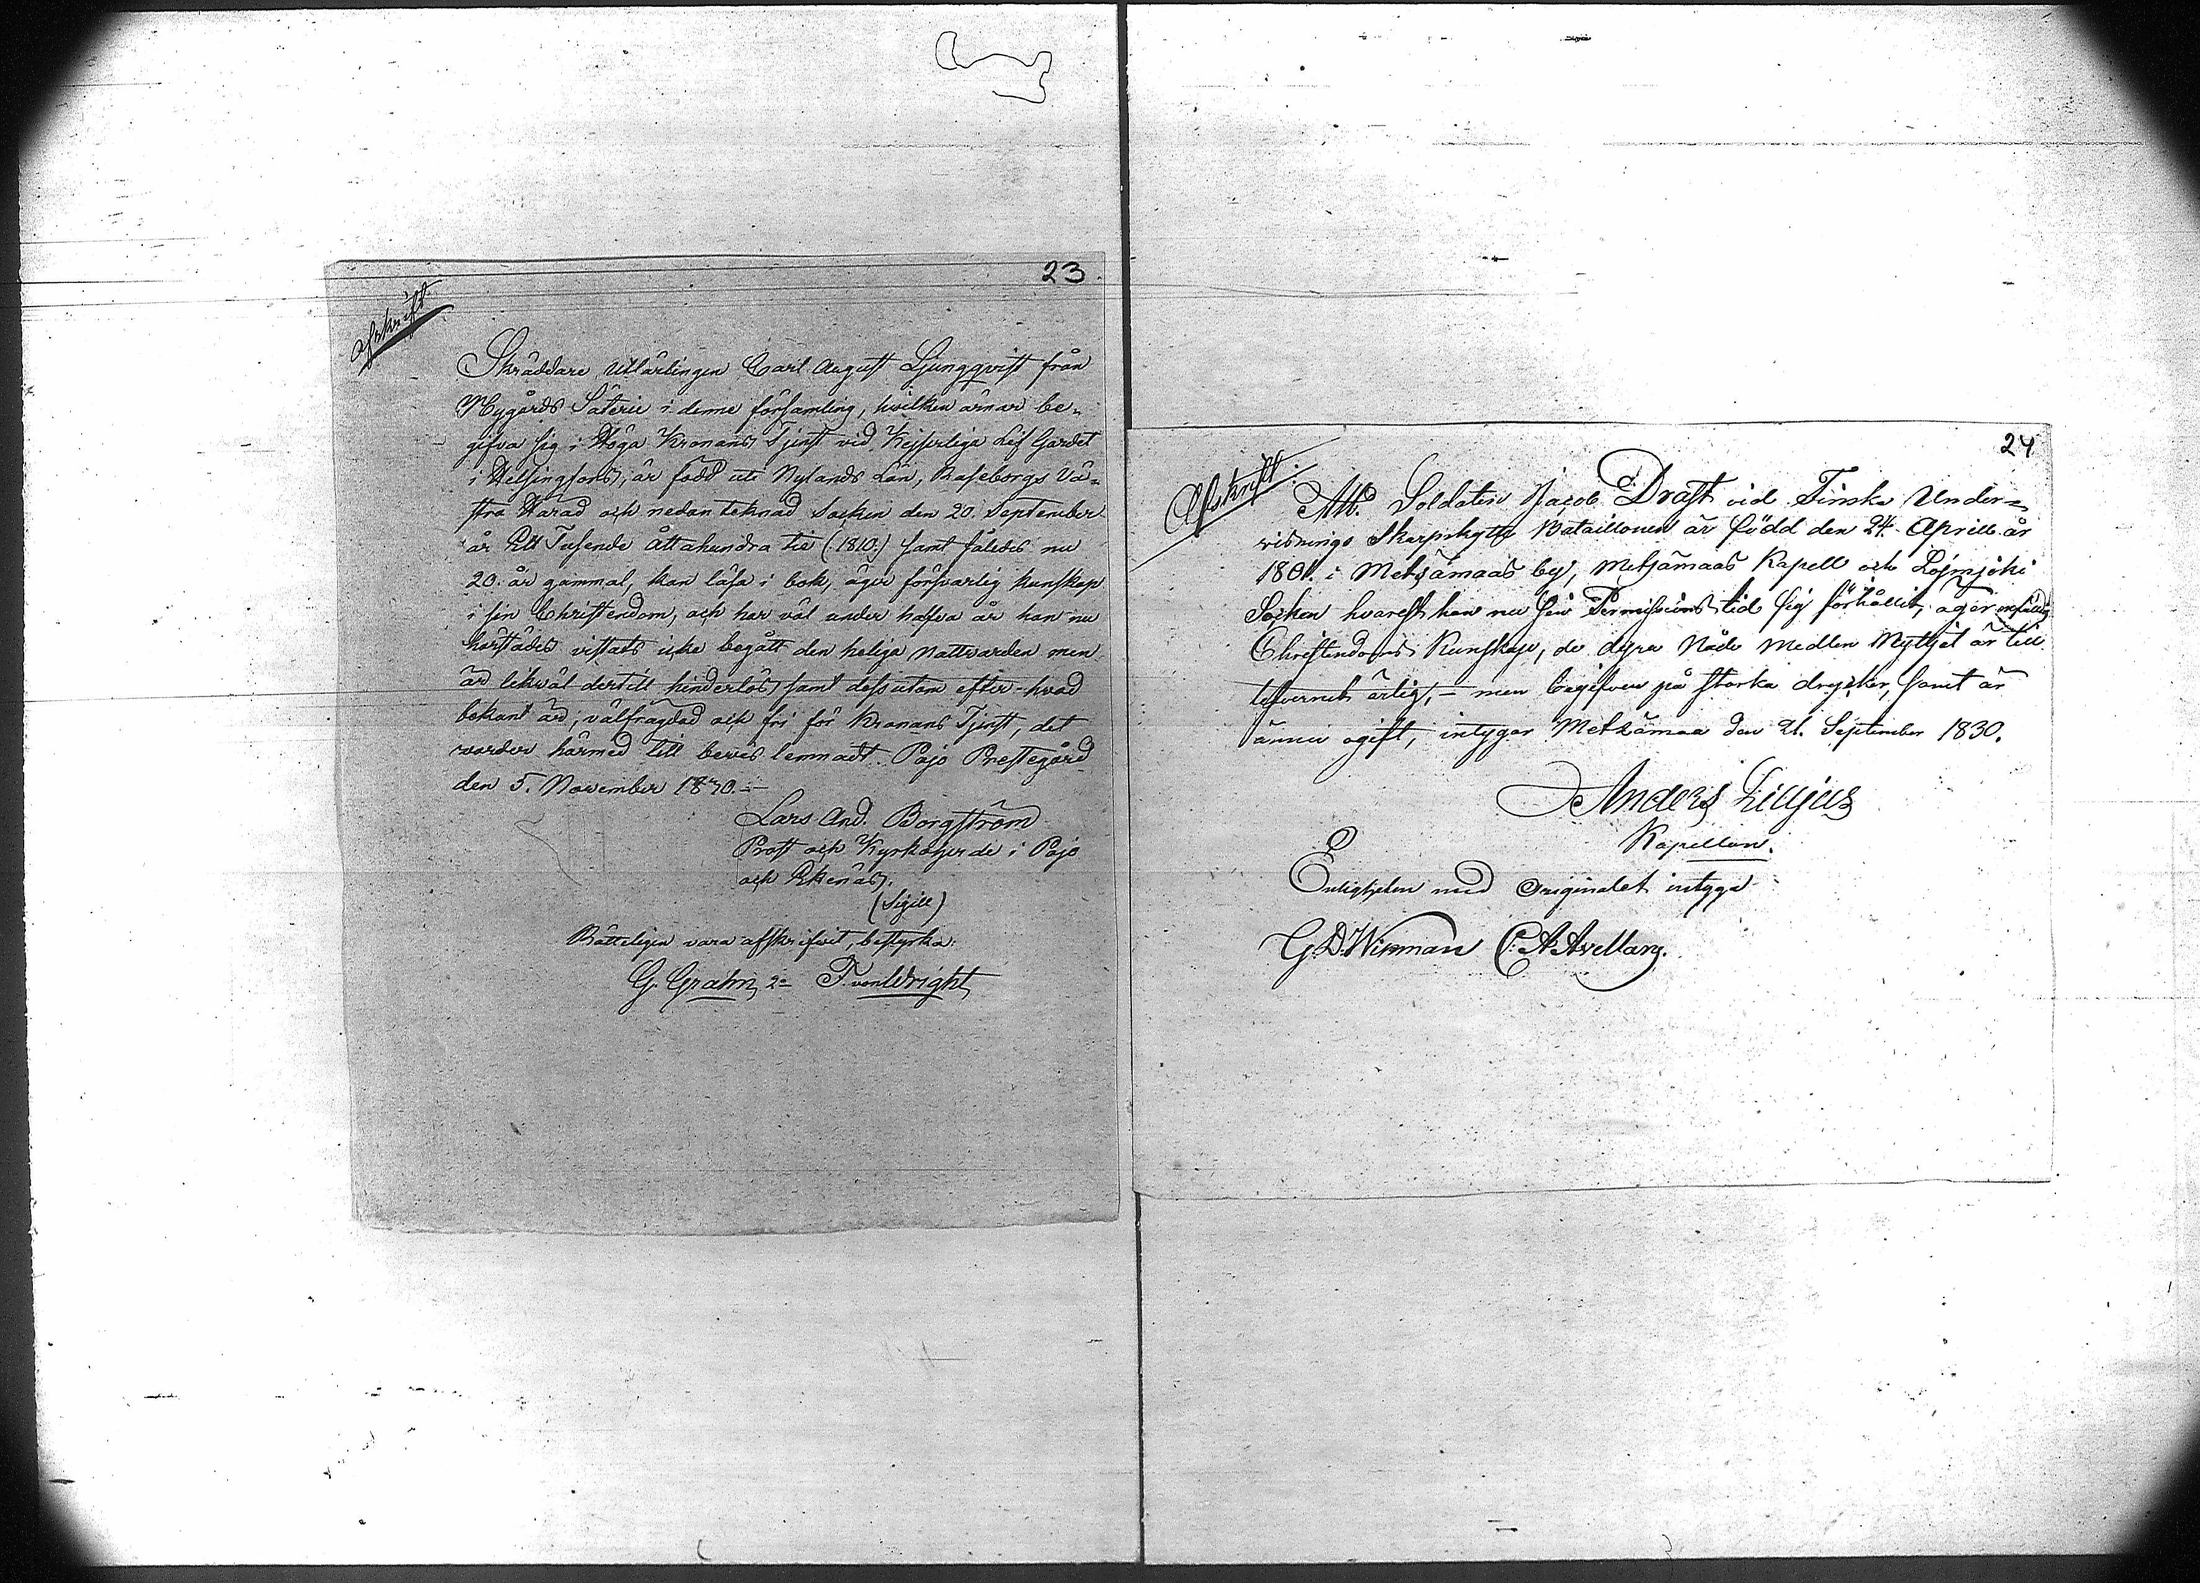 23
Afskrift
Skräddare Utlärlingen Carl August Ljungqvist från
Nygårds Säterie i denne församling, hvilken ärnar be-
gifva sig i Höga Kronans Tjenst vid Kejserliga Lif Gardet
i Helsingfors, är född uti Nylands Län, Raseborgs Vä-
stra Härad och nedan teknad Socken den 20. September
år Ett Tusende Åttahundra tie (:1810:) samt således nu
20. år gammal, kan läsa i bok, äger försvarlig kunskap
i sin Christendom, och har väl under halfva år han nu
härstädes vistats icke begått den heliga Nattvarden men
är likväl dertill hinderlös, samt dessutom efter hvad
bekant är, välfrägdad och fri för Kronans Tjenst, det
varder härmed till bevis lemnadt. Pojo Prestegård
den 5. November 1830.–
Lars And. Borgström
Prost och Kyrkoherde i Pojo
och Ekenäs.
(Sigill)
Rätteligen vara afskrifvit, bestyrka:
G. Grahn, 2= F. von Wright
24
Afskrift.
Att Soldaten Jacob Draft vid Finska Under-
visnings Skarpskytte Bataillonen är född den 24. Aprill år
1801. i Metzämaas by, Metsämaas Kapell och Lojmjoki
Socken hvarest han nu sin Permissions tid sig förhållit, äger
Christendoms Kunskap, de dyra Nåde Medlen Nyttjat är till
lefvernet ärlig, – men begifven på starka drycker, samt är
ännu ogift, intygar Metzämaa den 21. September 1830.
Anders Lilljus
Kapellan.
Enligheten med Originalet intyga
G. D. Winman C: A: Avellan.